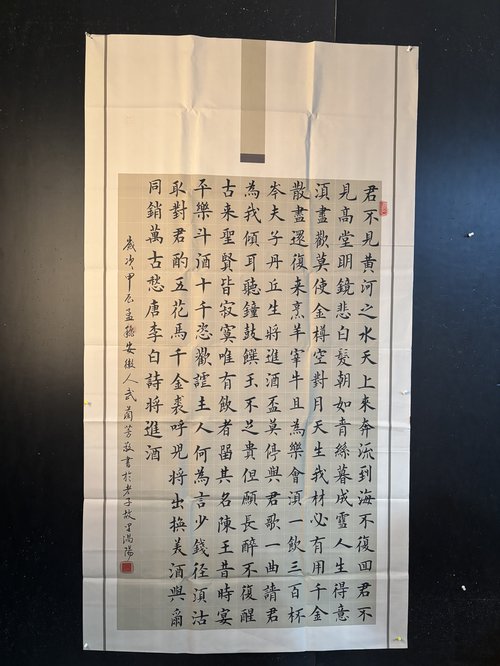 君不見黃河之水天上來奔流到海不復回君不
見高堂明鏡悲白髮朝如青絲暮成雪人生得意
須盡歡莫使金樽空對月天生我材必有用千金
散盡還復来烹羊宰牛且為樂會須一飲三百杯
岑夫子丹丘生將進酒盃莫停與君歌一曲請君
為我傾耳聽鐘鼓饌玉不足貴但願長醉不復醒
古来聖賢皆寂寞唯有飲者留其名陳王昔時宴
平樂斗酒十千恣歡謔主人何為言少錢径須沽
取對君酌五花馬千金裘呼児將出換美酒與爾
同銷萬古愁唐李白詩將進酒
歲次甲辰孟穐安徽人武蘭芳敬書於老子故里渦陽